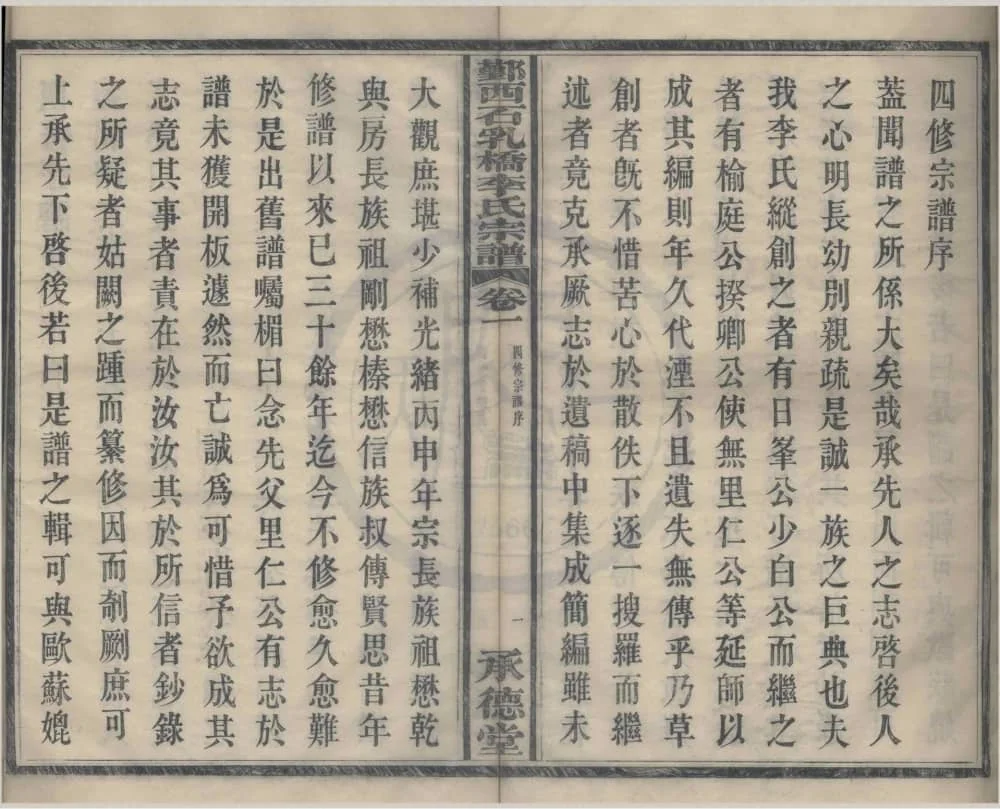 四修宗譜序
蓋聞譜之所係大矣哉承先人之志啓後人
之心明長幼別親疏是誠一族之巨典也夫
我李氏縱創之者有日峯公少白公而繼之
者有榆庭公揆卿公使無里仁公等延師以
成其編則年久代湮不且遺失無傳乎乃草
創者旣不惜苦心於散佚下逐一搜羅而繼
述者竟克承厥志於遺稿中集成簡編雖未
鄞西石乳橋李氏宗譜 卷一 四修宗譜序 一 承德堂
大觀庶堪少補光緒丙申年宗長族祖懋乾
與房長族祖剛懋榛懋信族叔傳賢思昔年
修譜以來已三十餘年迄今不修愈久愈難
於是出舊譜囑楣曰念先父里仁公有志於
譜未獲開板遽然而亡誠爲可惜予欲成其
志竟其事者責在於汝汝其於所信者鈔錄
之所疑者姑闕之踵而纂修因而剞劂庶可
上承先下啓後若曰是譜之輯可與歐蘇媲